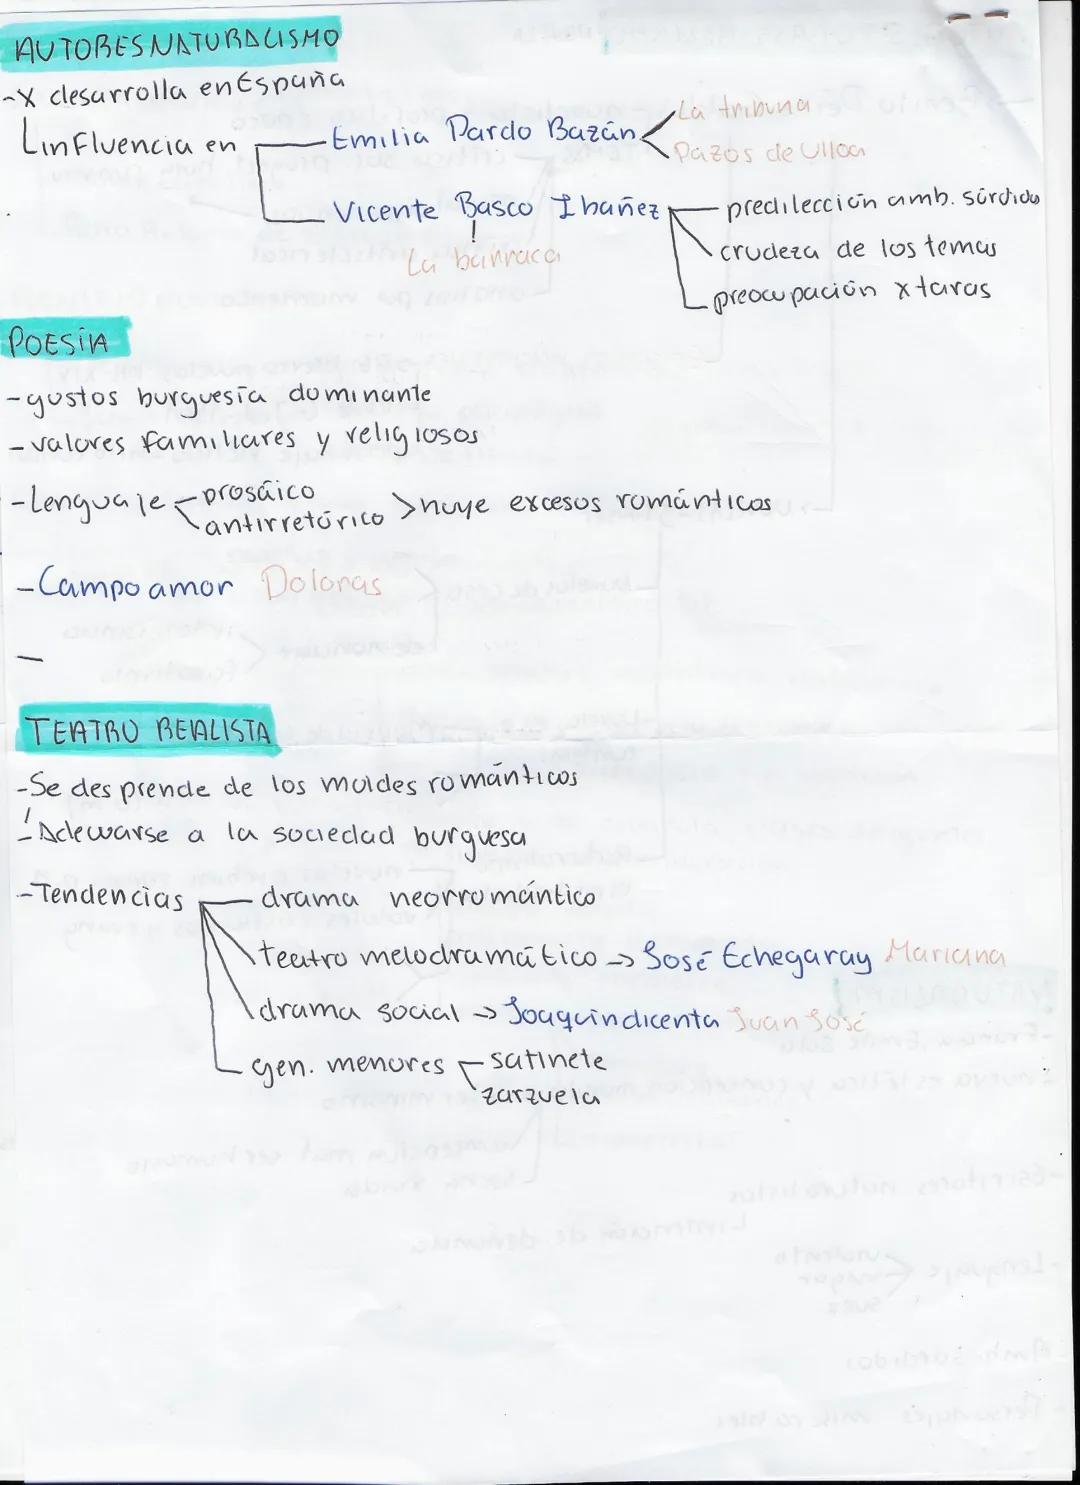 AUTORES NATURALISMO
-X desarrolla en España
Influencia en
Emilia Pardo Bazán
La tribuna
Pazos de Ulloa
Vicente Basco Ibañez
La barraca
predilección amb. sórdido
crudeza de los temas
preocupación x taras
POESÍA
-gustos burguesía dominante
-valores familiares y religiosos
-Lenguaje
prosáico
antirretórico
>huye excesos románticos
-Campoamor Doloras
-
TEATRO REALISTA
-Se desprende de los moldes románticos
-Adecuarse a la sociedad burguesa
-Tendencias
drama neorromántico
teatro melodramático → José Echegaray Mariana
drama social → Joaquín dicenta Juan José
gen. menores
satinete
zarzuela